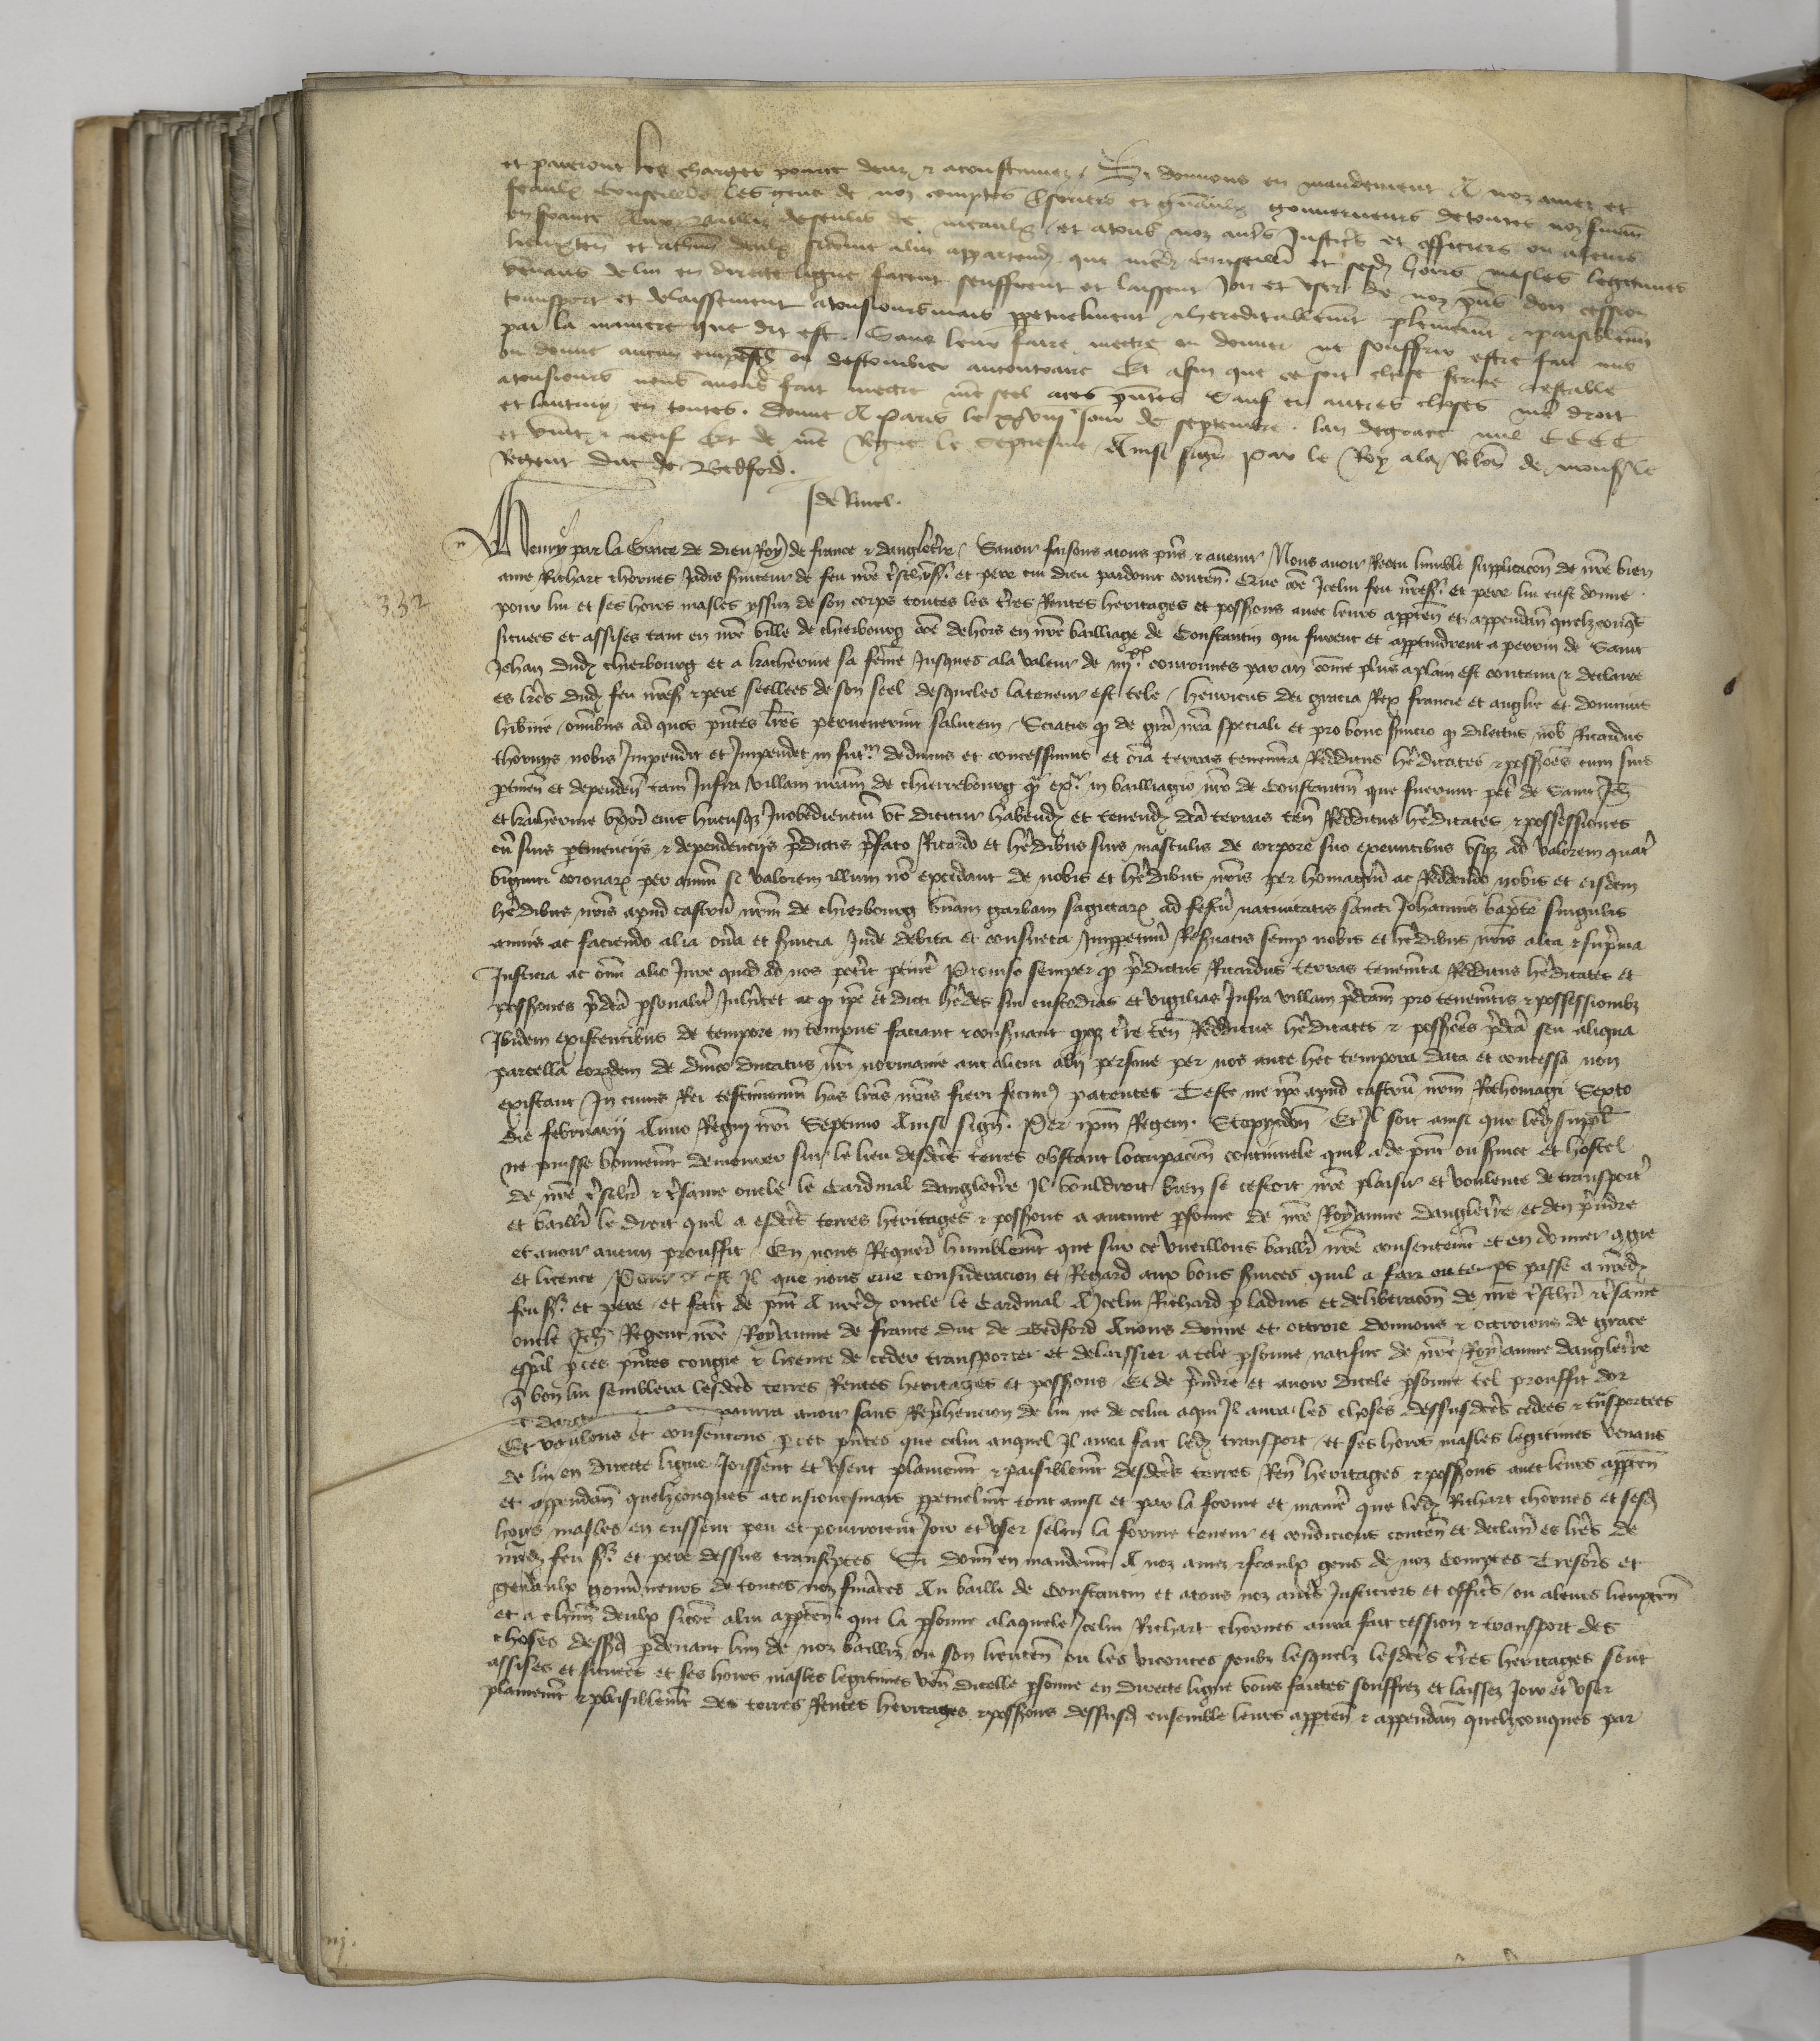 et paieront les charges pource deuz & acoustumez. Si donnons en mandement A noz amez et
feaulx conseilliers les gens de noz comptes Tresoriers et gnaulx gouverneurs de toutes noz finan
en france Aux Bailliz de senliz de meaulx et atous noz aut's Justic's et officiers ou aleurs
lieuxten et achun deulx si come alui appartendr que nred conseillr et sesd hoirs masles legitimes
venans de lui en directe ligne facent seuffrent et laissent Joir et user de noz pns don cession
transport et delaissement atousioursmais ppetuelment & hereditablemt plenemt & paisiblemt
par la maniere que dit est. Sans leur faire mectre ou donner ne souffrir estre fait mis
ou donne aucun empesch ou destourbier aucontraire Et afin que ce soit chose ferme & estable
atousiours nous avons fait mectre nre seel aces pntes Sauf en autres choses nre droit
et lautruy en toutes. Donne A Paris le xxviij Jour de septembre. lan degrace mil CCCC
et vint & neuf Et de nre Regne le septiesme Ainsi signe Par le Roy ala Relon de monss le
Regent duc de Bedford.
J de Rinel.
Henry par la Grace de dieu Roy de france & dangleterre Savoir faisons atous pns & avenir Nous avoir Receu humble supplicacon de nre bien
ame Richart thornes Jadis serviteur de feu nre treschrss et pere cui dieu pardoint conten Que come Jcelui feu nress et pere lui eust donne
332
pour lui et ses hoirs masles yssuz de son corps toutes les tres Rentes heritages et possess avec leurs apparten et appendan quelzconqs
situees et assises tant en nre ville de chierbourg coe dehors en nre bailliage de Constantin qui furent et appartindrent a perrin de Saint
Jehan dud chierbourg et a katherine sa feme Jusques ala valeur de iiijxx couronnes par an come plus aplain est contenu & declaire
es lres dud feu nress & pere seellees de son seel desqueles lateneur est tele / henricus dei gracia Rex francie et anglie et dominus
hibnie / omibus ad quos pntes lres pervenerint salutem / Sciatis q de gra nra speciali et pro bono svicio q dilectus nob Ricardus
thornys nobis Jmpendit et Jmpendet in fut. dedimus et concessimus ei oia terras tenemta Redditus hditates & possessioes cum suis
ptinen et dependen tam Jnfra villam nram de chierrebourg qm ex in bailliagio nro de Constantin que fuerunt pet de Saint Jeh
et katherine uxor eius hucusq Jnobedienciu ut dicitur habend et tenend dca terras ten Redditus hditates & possessiones
cu suis ptinenciis & dependenciis pdictis pfato Ricardo et hdibus suis masculis de corpore suo exeuntibus usq ad valorem quat
viginti coronar per annu si valorem illum no excedant de nobis et hdibus nris per homagiu ac Reddendo nobis et eisdem
hdibus nris apud castru nrm de chierbourg unam garbam sagittar ad festu nativitatis sancti Johannis bapte singulis
annis ac faciendo alia ona et svicia Jnde debita et consueta Jmppetuu Resvatis semp nobis et hdibus nris alta & suprma
Justicia ac omi alio Jure quod ad nos potit ptinere Proviso semper q pdictus Ricardus terras tenemta Redditus hditates et
possessiones pdca psonalit Jnhitet ac q ipe et dicti hdes sui custodias et vigilias Jnfra villam pdcam pro tenemtis & possessionibz
Jbidem existentibus de tempore in tempus faciant & consvant qq tre ten Redditus hditates & possessoes pdca seu aliqua
parcella eorudem de dnico ducatus nri normanie aut alicui alij persone per nos ante hec tempora data et concessa non
existant In cuius Rei testimonium has lras nras fieri fecim patentes Teste me ipo apud castru nrm Rothomagi Sexto
die februarij Anno Regni nri Septimo Ainsi sign. Per ipm Regem. Stopyndon Et Jl soit ainsi que led suppl
ne puisse bonnemt demourer sur le lieu desdes terres obstant loccupacion continuele quil a de pnt ou svice et hostel
de nre treschr & tresame oncle le Cardinal dangleterre Jl vouldroit bien se cestoit nre plaisir et voulente de transport
et bailler le droit quil a esdes terres heritages & possess a aucune psonne de nre Royaume dangleterre et den prndre
et avoir aucun prouffit En nous Requer humblemt que sur ce vueillons bailler nre consentemt et en donner cgie
et licence Pour ce est Jl que nous eue consideracion et Regard aux bons svices quil a faiz ou temps passe a nred
feu ss et pere et fait de pnt A nred oncle le Cardinal A Jcelui Richard p ladvis et deliberacon de nre treschr & tresame
oncle Jeh Regent nre Royaume de france duc de Bedford Avons donne et octroie donnons & octroions de grace
espal p ces pntes congie & licence de ceder transporter et delaissier a tele psonne natifve de nre Royaume dangleterre
q bon lui semblera lesdes terres Rentes heritages et possess Et de prndre et avoir dicele psonne tel prouffit dor
& dargent pourra avoir sans Reprhencion de lui ne de celui aqui Jl aura les choses dessusdes cedees & tnsportees
Et voulons et consentons p ces pntes que celui auquel Jl aura fait led transport et ses hoirs masles legitimes venans
de lui en directe ligne Joissent et usent plainemt & paisiblemt desdes terres Ren heritages & possess avec leurs apparten
et appendan quelzconques atousioursmais ppetuelmt tout ainsi et par la forme et manie que led Richart thornes et sesd
hoirs masles en eussent peu et pourroient Joir et user selon la forme teneur et condicions conten et declair es lres de
nred feu ss et pere dessus transcriptes Si donn en mandemt A noz amez & feaulx gens de noz Comptes Tresors et
genaulx gouvneurs de toutes noz finaces Au bailli de Constantin et atous noz autrs Justiciers et offics ou aleurs lieuxten
et a chun deulx sicoe alui apparten que la psonne alaquele Jcelui Richart thornes aura fait cession & transport des
choses dessusd pdevant lun de noz bailliz ou son lieuten ou les vicontes soubz lesquelz lesdes tres heritages sont
assises et situees et ses hoirs masles legitimes ven dicelle psonne en directe ligne vous faictes souffrez et laissez Joir et user
plainemt & paisiblemt des terres Rentes heritages & possess dessusd ensemble leurs apparten & appendan quelzconques par